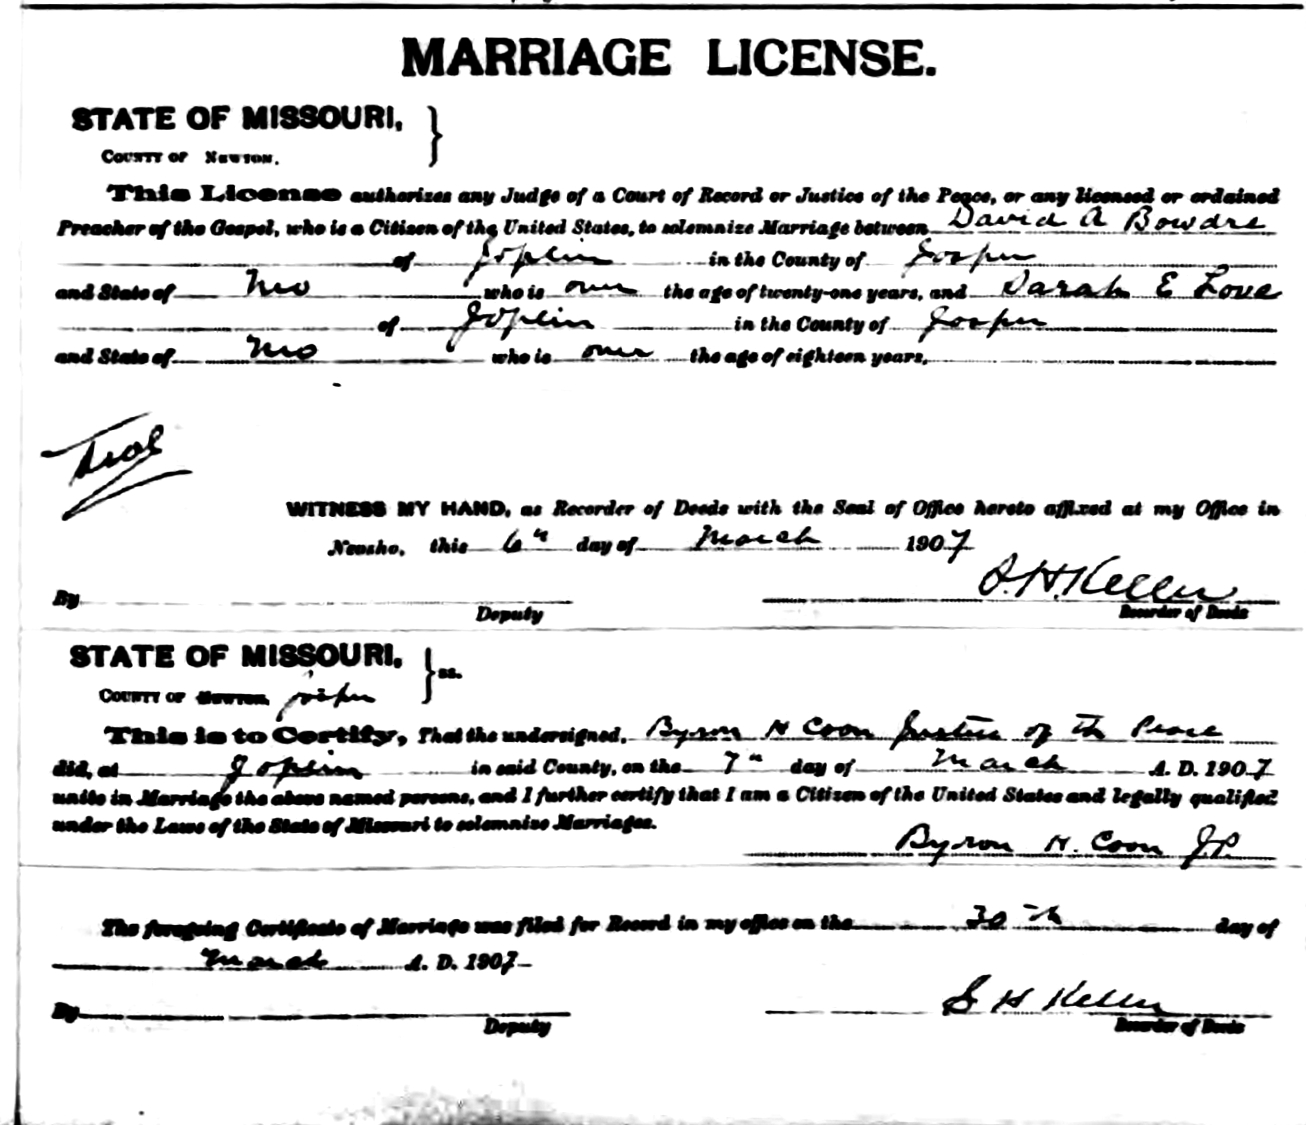 MARRIAGE LICENSE.
STATE OF MISSOURI,
COUNTY OF NEWTON.
This License authorizes any Judge of a Court of Record or Justice of the Peace, or any licensed or ordained
Preacher of the Gospel, who is a Citizen of the United States, to solemnize Marriage between David A Bowdre
of Joplin in the County of Jasper
and State of Mo who is over the age of twenty-one years, and Sarah E Love
of Joplin in the County of Jasper
and State of Mo who is over the age of eighteen years,
Seal
WITNESS MY HAND, as Recorder of Deeds with the Seal of Office hereto affixed at my Office in
Neosho, this 6th day of March 1907
S. H. Keller
By Deputy Recorder of Deeds
STATE OF MISSOURI, ss.
COUNTY OF Newton, Jasper
This is to Certify, That the undersigned, Byron H Coon Justice of the Peace
did, at Joplin in said County, on the 7th day of March A. D. 1907
unite in Marriage the above named persons, and I further certify that I am a Citizen of the United States and legally qualified
under the Laws of the State of Missouri to solemnize Marriages.
Byron H. Coon J.P.
The foregoing Certificate of Marriage was filed for Record in my office on the 30th day of
March A. D. 1907
S H Keller
By Deputy Recorder of Deeds